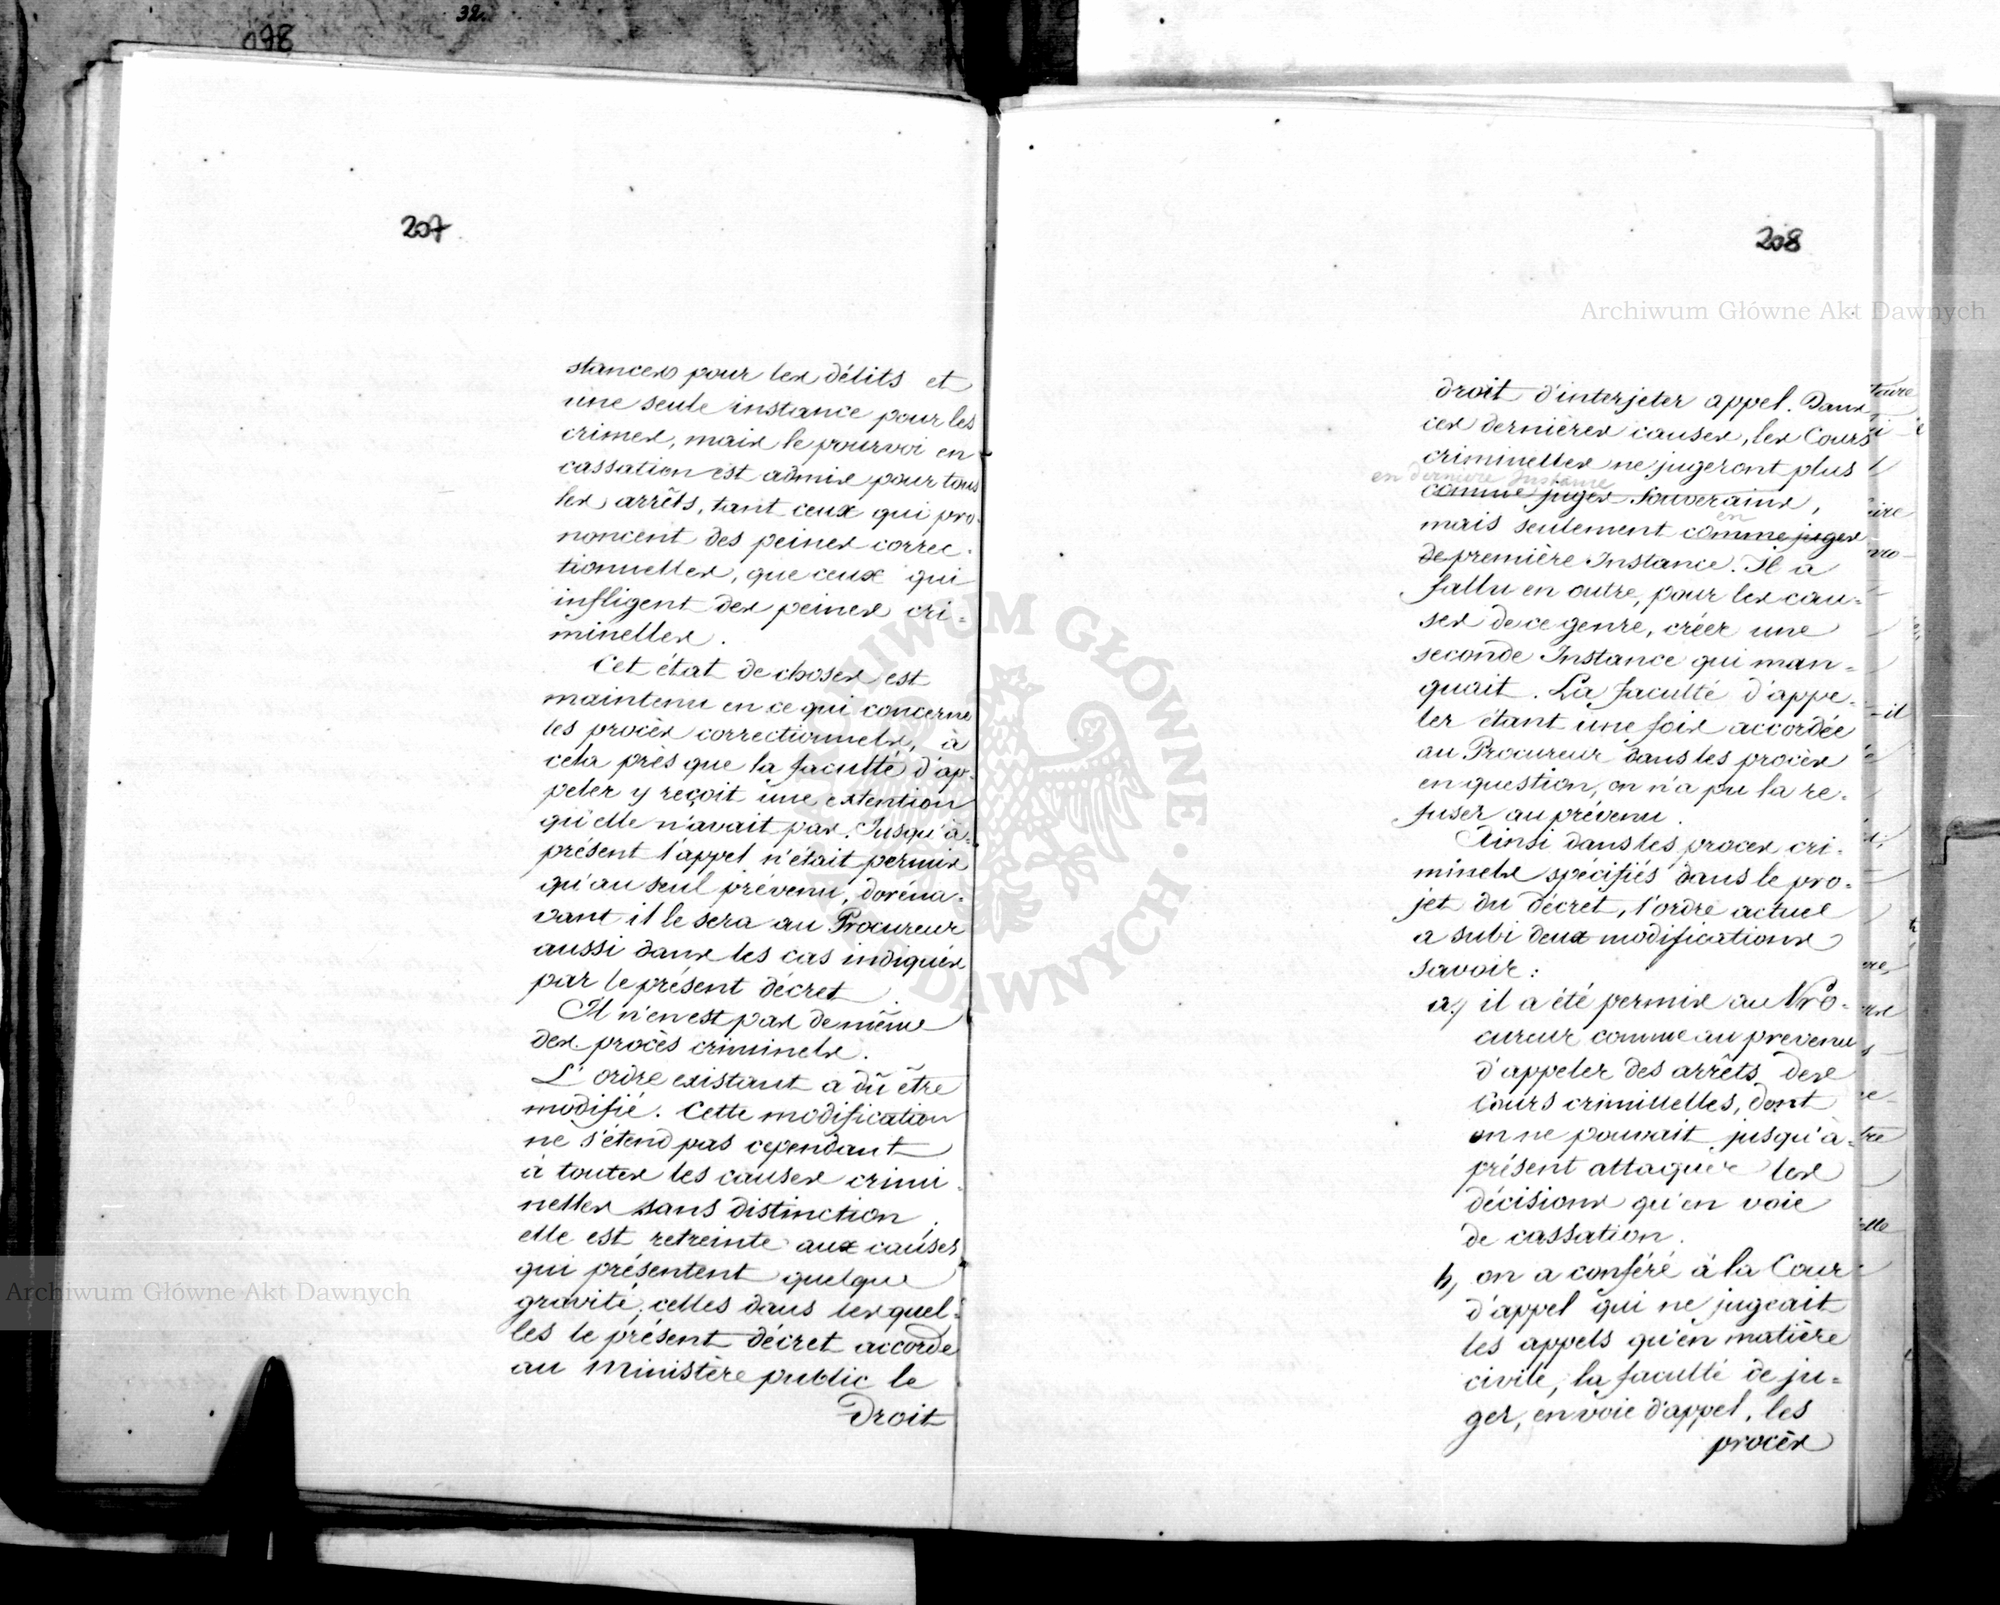 098
32.
207
stances pour les délits et
une seule instance pour les
crimes, mais le pourvoi en
cassation est admis pour tous
les arrêts, tant ceux qui pro-
noncent des peines correc-
tionnelles, que ceux qui
infligent des peines cri-
minelles.
Cet état de choses est
maintenu en ce qui concerne
les procès correctionnels, à
cela près que la faculté d'ap-
peler y reçoit une extention
qu'elle n'avait pas. Jusqu'à-
présent l'appel n'était permis
qu'au seul prévenu, doréna-
vant il le sera au Procureur
aussi dans les cas indiqués
par le présent décret.
Il n'en est pas de même
des procès criminels.
L'ordre existant a dû être
modifié. Cette modification
ne s'étend pas cependant
à toutes les causes crimi-
nelles sans distinction.
elle est retreinte aux causes
qui présentent quelque
gravité, celles dans lesquel-
les le présent décret accorde
au Ministère public le
Droit
208
droit d'interjeter appel. Dans
ces dernières causes, les Cours
criminelles ne jugeront plus
en dernière Instance
comme juges Souverains,
en
mais seulement comme juges
de première Instance. Il a
fallu en outre, pour les cau-
ses de ce genre, créer une
seconde Instance qui man-
quait. La faculté d'appe-
ler étant une fois accordée
au Procureur dans les procès
en question, on n'a pu la re-
fuser au prévenu.
Ainsi dans les proces cri-
minels spécifiés dans le pro-
jet du décret, l'ordre actuel
a subi deux modifications
savoir:
a,) il a été permis au Pro-
cureur comme au prevenu
d'appeler des arrêts des
Cours criminelles, dont
on ne pouvait jusqu'à-
présent attaquer les
décisions qu'en voie
de cassation.
b, on a conféré à la Cour
d'appel qui ne jugeait
les appels qu'en matière
civile, la faculté de ju-
ger, en voie d'appel, les
procès
Archiwum Główne Akt Dawnych
Archiwum Główne Akt Dawnych
ARCHIWUM GŁÓWNE AKT DAWNYCH